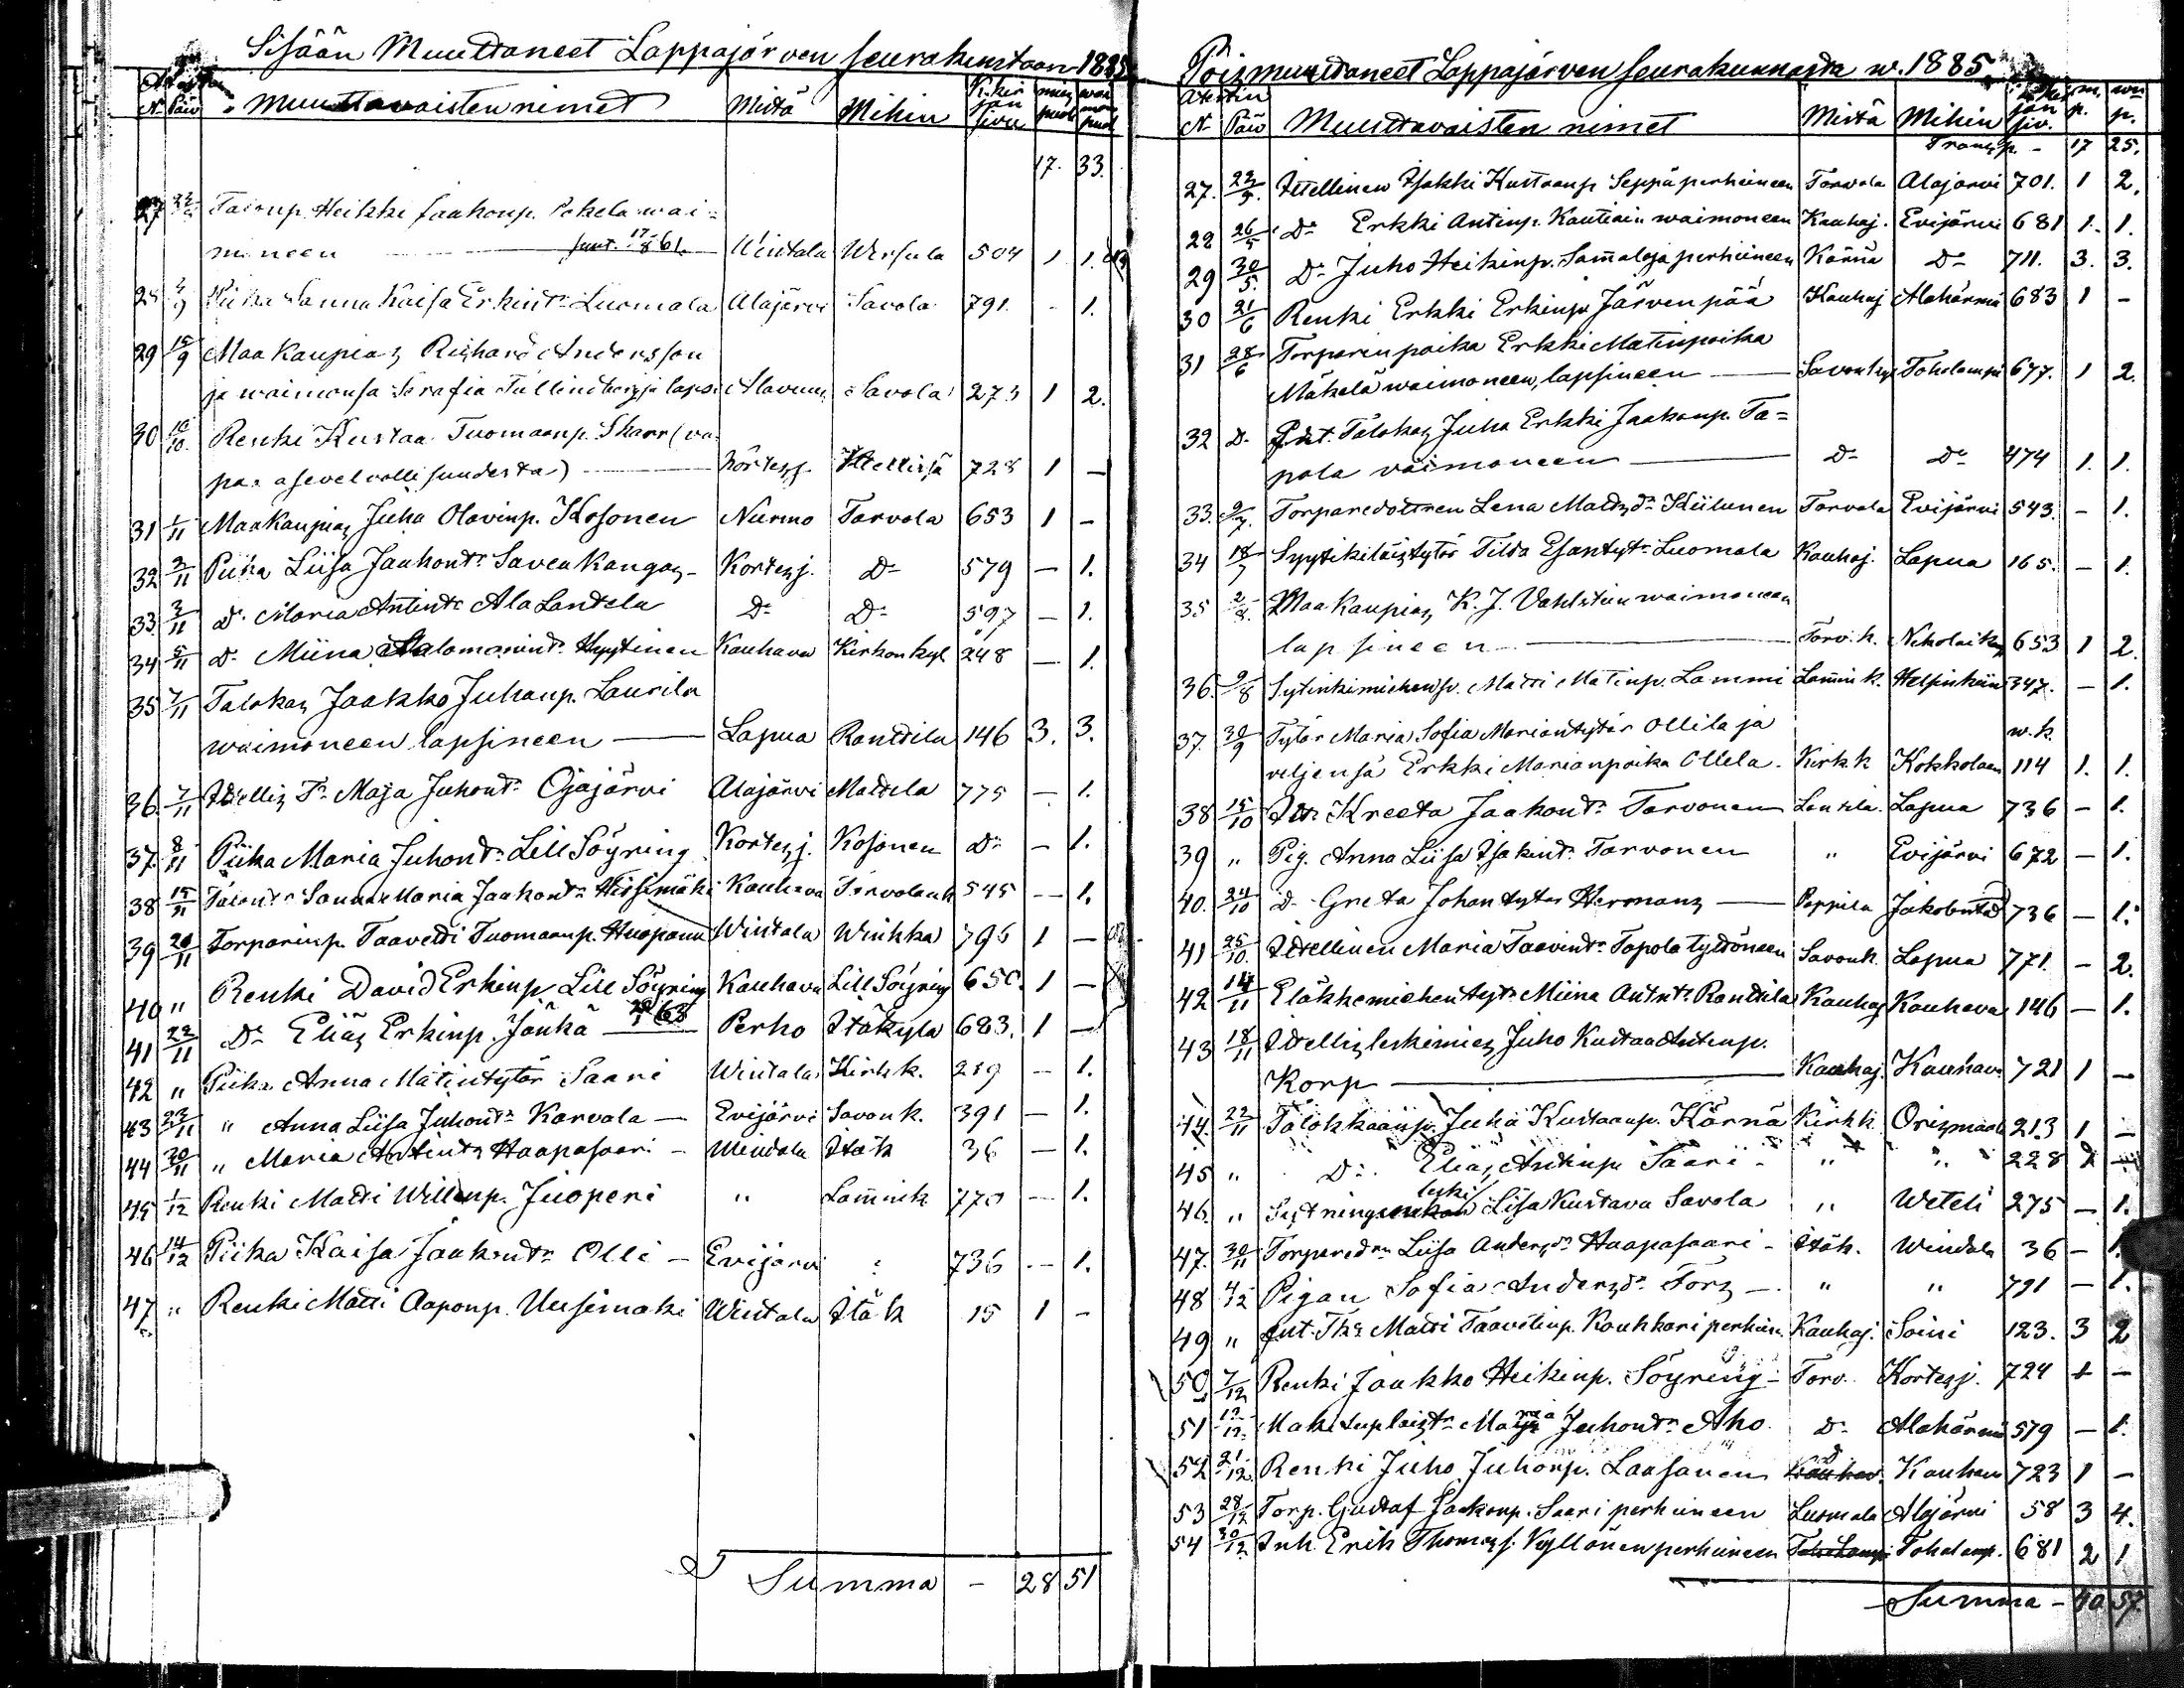 Sisään Muuttaneet Lappajärven seurakuntaan 1885
N Päiv Muuttavaisten nimet Mistä Mihin K. kirjan sivu mies puoli vaimo puol
17. 33.
27 Heikki Jaakonp. Pekela wai=
moneen synt. 17/8 61. Wintala 504 1 1.
28 Piika Sanna Kaisa Erkint:r Luomala Alajärvi Savola 791. - 1.
29 15/9 Maakaupias Richard Andersson
ja waimonsa Serafia Tullindberg ja lapsi Alavuus Savola 273 1 2.
30 10/10 Renki Kustaa Tuomaanp. Skarr (va
paa asevelvollisuudesta) Kortesj. Itellisiä 728 1 -
31 1/11 Maakaupias Juha Olavinp. Kosonen Nurmo Tarvola 653 1 -
32 2/11 Piika Liisa Jaakont:r Savenkangas - Kortesj. D:o 579 - 1.
33. 3/11 D:o Maria Antint:r Ala Lantela D:o D:o 597 - 1.
34 5/11 D:o Miina Salomonint:r Hyytinen Kauhava Kirkonkyl 248 - 1.
35 7/11 Talokas Jaakko Juhanp. Laurila
waimoneen lapsineen Lapua Ranttila 146 3. 3.
36. 7/11 Itellis T:r Maja Juhont:r Ojajärvi Alajärvi Mattila 775 - 1.
37. 8/11 Piika Maria Juhont:r Lill Söyring Kortesj. Kosonen D:o - 1.
38 15/11 Talont:r Sanna Maria Jaakont:r Hissimäki Kauhava Tarvolank 545 - 1.
39 20/11 Torparinp. Taavetti Tuomaanp. Huopana Wintala Winkka 795 1 -
40 " Renki David Erkinp. Lill Söyring Kauhava Lill Söyring 650. 1 -
41 22/11 D:o Elias Erkinp. Jänkä 63 Perho Itäkyla 683. 1 -
42 " Piika Anna Matintytär Saari Wintala Kirkk. 219 - 1.
43 23/11 " Anna Liisa Juhont:r Karvala - Evijärvi Savonk. 391 - 1.
44 30/11 " Maria Antint:r Haapasaari - Wintala Itäk 36 - 1.
45 1/12 Renki Matti Willenp. Juoperi " Lamink 770 - 1.
46 14/12 Piika Kaisa Jaakont:r Olli - Evijärvi " 736 - 1.
47 " Renki Matti Aaponp. Uusimäki Wintala Itäk 15 1 -
Summa - 28 51
Poismuuttaneet Lappajärven seurakunnasta w. 1885
Atestin N Päiv Muuttavaisten nimet Mistä Mihin jan siv. m. p. w. p.
Transp. - 17 25.
27. 22/5. Itellinen Isakki Kustaanp Seppä perheineen Tarvola Alajärvi 701. 1 2.
28 26/5 D:o Erkki Antinp. Kautiain waimoneen Kauhaj. Evijärvi 681 1. 1.
29 30/5. D:o Juho Heikinp. Samaloja perheineen Kärnä D:o 711. 3. 3.
30 21/6 Renki Erkki Erkinp Järvenpää Kauhaj Alahärmä 683 1 -
31 28/6 Torparinpoika Erkki Matinpoika
Mäkelä waimoneen, lapsineen Savonky Toholampi 677. 1 2.
32 D:o Ent. Talokas Juha Erkki Jaakonp. Ta=
pola vaimoneen D:o D:o 474 1. 1.
33. 9/7. Torparedottren Lena Matsd:r Kiilunen Tarvola Evijärvi 543. - 1.
34 18/7 Syytikiläistytär Tilda Esantyt:r Luomala Kauhaj. Lapua 165. - 1.
35 2/8. Maakaupias K. J. Vahlsten waimoneen
lapsineen Tarv. k. Nikolaik 653 1 2.
36. 9/8 Sytinkimiehen Matti Matinp. Lammi Lamink. Helsinkiin 347. - 1.
37. 30/9 Tytär Maria Sofia Mariantytär Ollila ja w. k.
veljensä Erkki Marianpoika Ollila. Kirkk Kokkolaan 114 1. 1.
38 15/10 Kreeta Jaakont:r Tarvonen Lapua 736 - 1.
39 " Pig. Anna Liisa Isakint:r Tarvonen " Evijärvi 672 - 1.
40. 24/10 D:o Greta Johantytar Hermans Pappila Jakobstad 736 - 1.
41 25/10. Itellinen Maria Taavint:r Tapola tyttöneen Savonk. Lapua 771. - 2.
42 14/11 Eläkkemiehen tyt:r Miina Antnt:r Ranttila Kauhaj Kauhava 146 - 1.
43 18/11 Itellis leskimies Juho Kustaa Antinp.
Korp Kauhaj. Kauhava 721 1 -
44. 22/11 Talokkaanp. Juha Kustaanp. Kärnä Kirkk Orismaala 213 1 -
45 " D:o Elias Antinp. Saari - " " 228 1 -
46. " leski Liisa Kustava Savola " Weteli 275 - 1.
47. 30/11 Torpared:rn Liisa Anders d:r Haapasaari - Itäk. Windala 36 - 1.
48 4/12 Pigan Sofia Anders d:r Fors - " " 791 - 1.
49 " Ent. Matti Taavetinp. Koukkari perhein. Kauhaj. Soini 123. 3 2
50 7/12 Renki Jaakko Heikinp. Söyring - Tarv. Kortesj. 724 1 -
51 Maria Juhont:r Aho D:o Alahärmä 579 - 1.
52 21/12 Renki Juho Juhonp. Laasanen Kauhav. Kauhava 723 1 -
53 28/12 Torp. Gustaf Jaakonp. Saari perheineen Luomala Alajärvi 58 3 4.
54 30/12 Inh. Erik Thomass. Kyllönen perheineen Toholampi Toholamp. 681 2 1
Summa - 40 57.